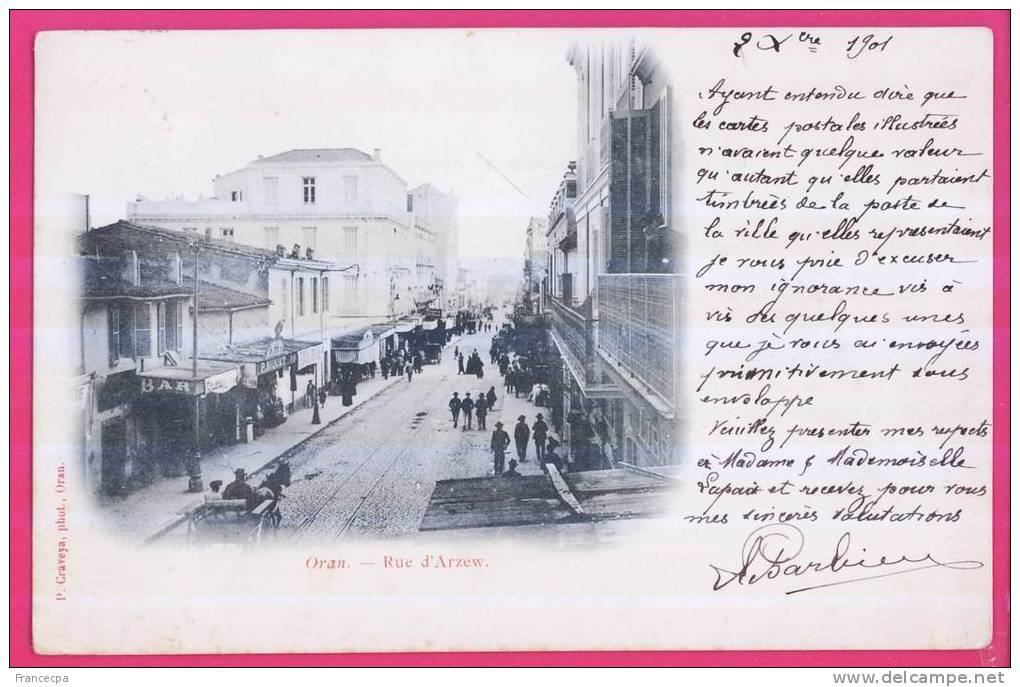 8 Xcre 1901
Ayant entendu dire que
les cartes postales illustrées
n'avaient quelque valeur
qu'autant qu'elles partaient
timbrées de la poste de
la ville qu'elles representaient
je vous prie d'excuser
mon ignorance vis à
vis des quelques unes
que je vous ai envoyées
primitivement sous
enveloppe
Veuillez presenter mes respects
à Madame & Mademoiselle
et recevez pour vous
mes sincères salutations
Barbieu
BAR
BAR
Oran. — Rue d'Arzew.
P. Craveya, phot., Oran.
Francecpa
www.delcampe.net